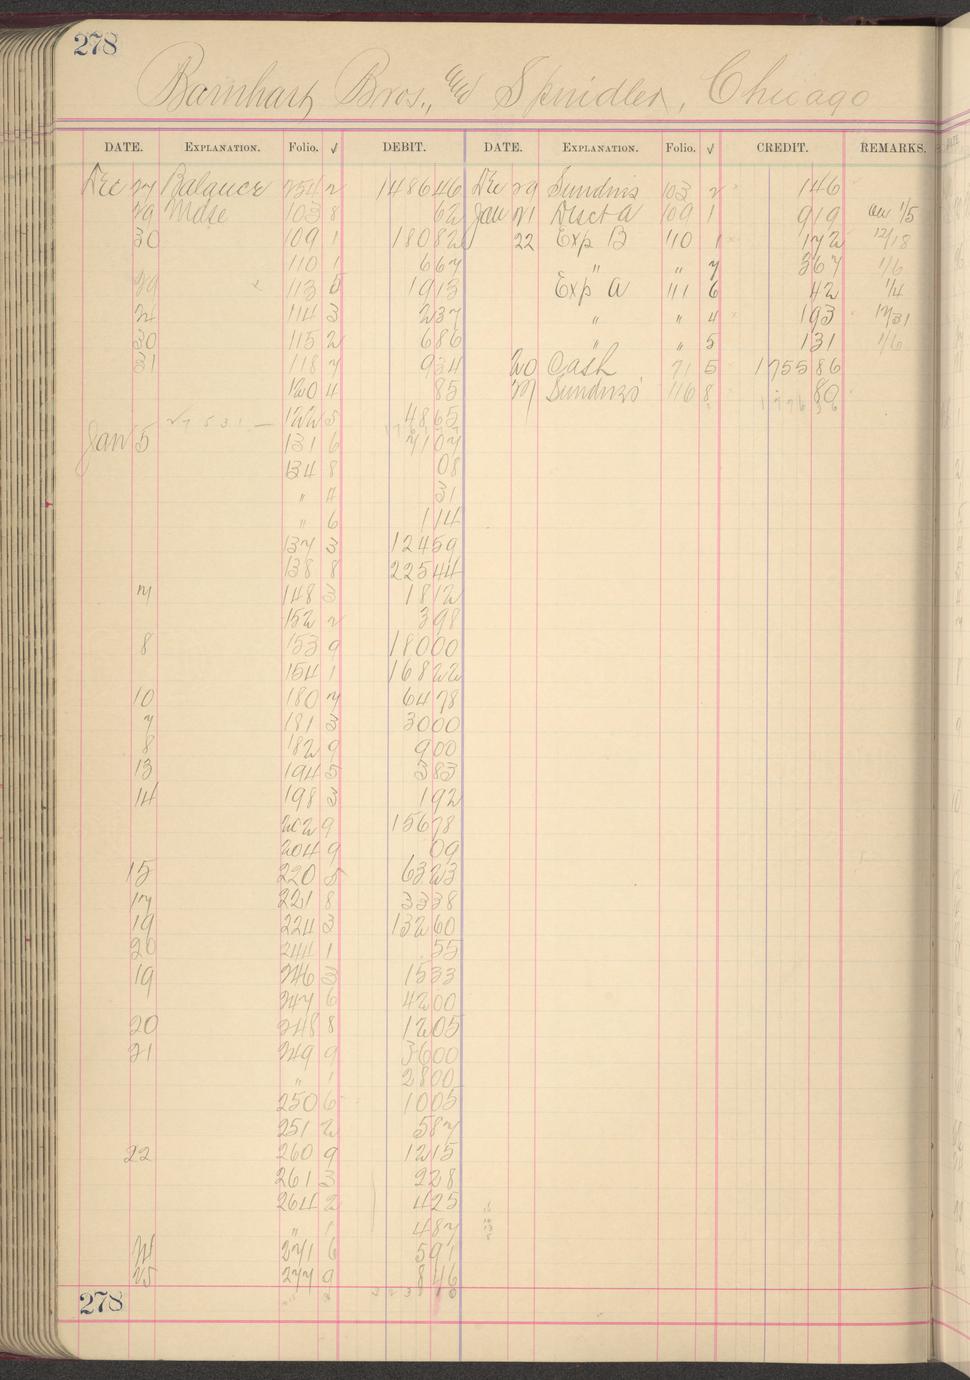 278
Barnhart Bros., and Spindler, Chicago
DATE. EXPLANATION. Folio. √ DEBIT. DATE. EXPLANATION. Folio. √ CREDIT. REMARKS.
Dec 27 Balance 254 2 1486 46 Dec 29 Sundries 103 2 1 46
29 Mdse 103 8 62 Jan 21 Disct a 109 1 9 19 1/5
30 109 1 180 82 22 Exp B 110 1 1 72 12/18
110 1 6 67 " " 7 3 67 1/6
29 113 5 19 13 Exp a 111 6 42 1/4
24 114 3 2 37 " " 4 1 93 12/31
30 115 2 6 86 " " 5 1 31 1/6
31 118 7 9 34 20 Cash 71 5 1755 86
120 4 85 27 Sundries 116 8 80
122 5 48 65
Jan 5 131 6 71 07
134 8 08
" 4 31
" 6 1 14
137 3 124 59
138 8 225 44
7 148 3 18 12
152 2 3 98
8 153 9 180 00
154 1 168 22
10 180 7 64 78
7 181 3 30 00
8 182 9 9 00
13 194 5 3 83
14 198 3 1 92
202 9 156 78
204 9 09
15 220 5 63 23
17 221 8 33 38
19 224 3 132 60
20 244 1 55
19 246 3 15 33
247 6 42 00
20 248 8 12 05
21 249 9 36 00
" 1 28 00
250 6 10 05
251 2 5 87
22 260 9 12 15
261 3 2 28
264 2 4 25
" 1 4 87
24 271 6 5 91
25 277 9 8 46
278